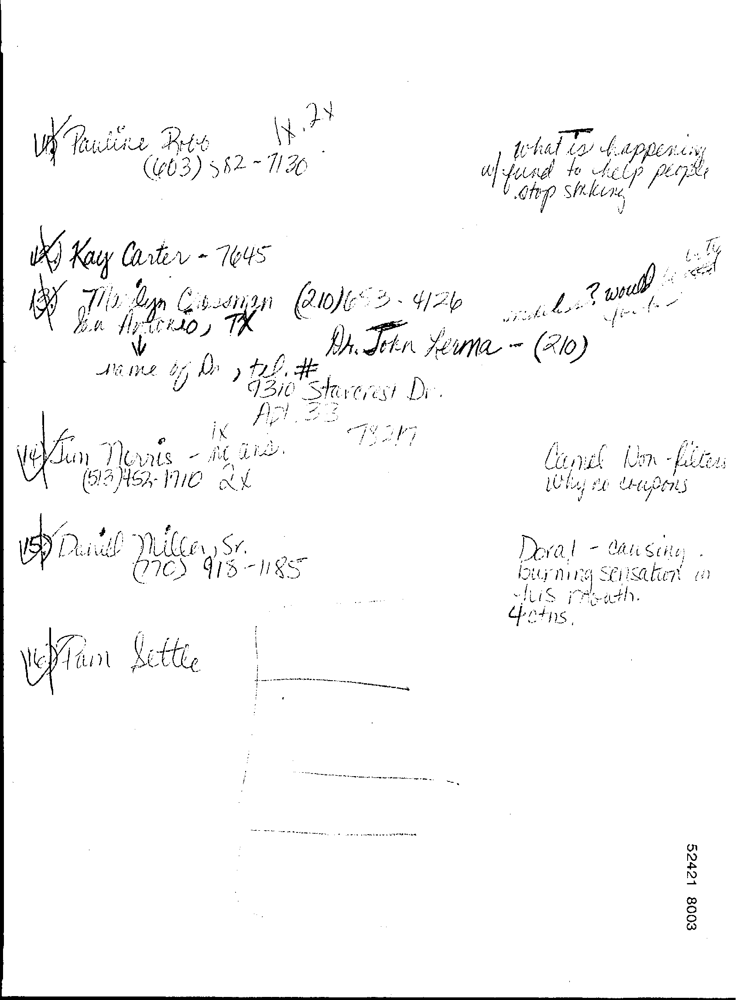 11) Pauline Robb 1x, 2x
(603) 582-7130
what is happening
w/ fund to help people
stop smoking
12) Kay Carter - 7645
13) Marilyn Crossman (210) 653-4126
San Antonio, TX
? would
Dr. John Lerma - (210)
name of Dr, tel. #
9310 Starcrest Dr.
Apt. 33
78217
14) Jim Norris - 1x no ans.
(513) 452-1710 2x
Camel Non-filters
Why no coupons
15) Daniel Miller, Sr.
(770) 918-1185
Doral - causing
burning sensation in
his mouth.
4 ctns.
16) Pam Settle
52421 8003